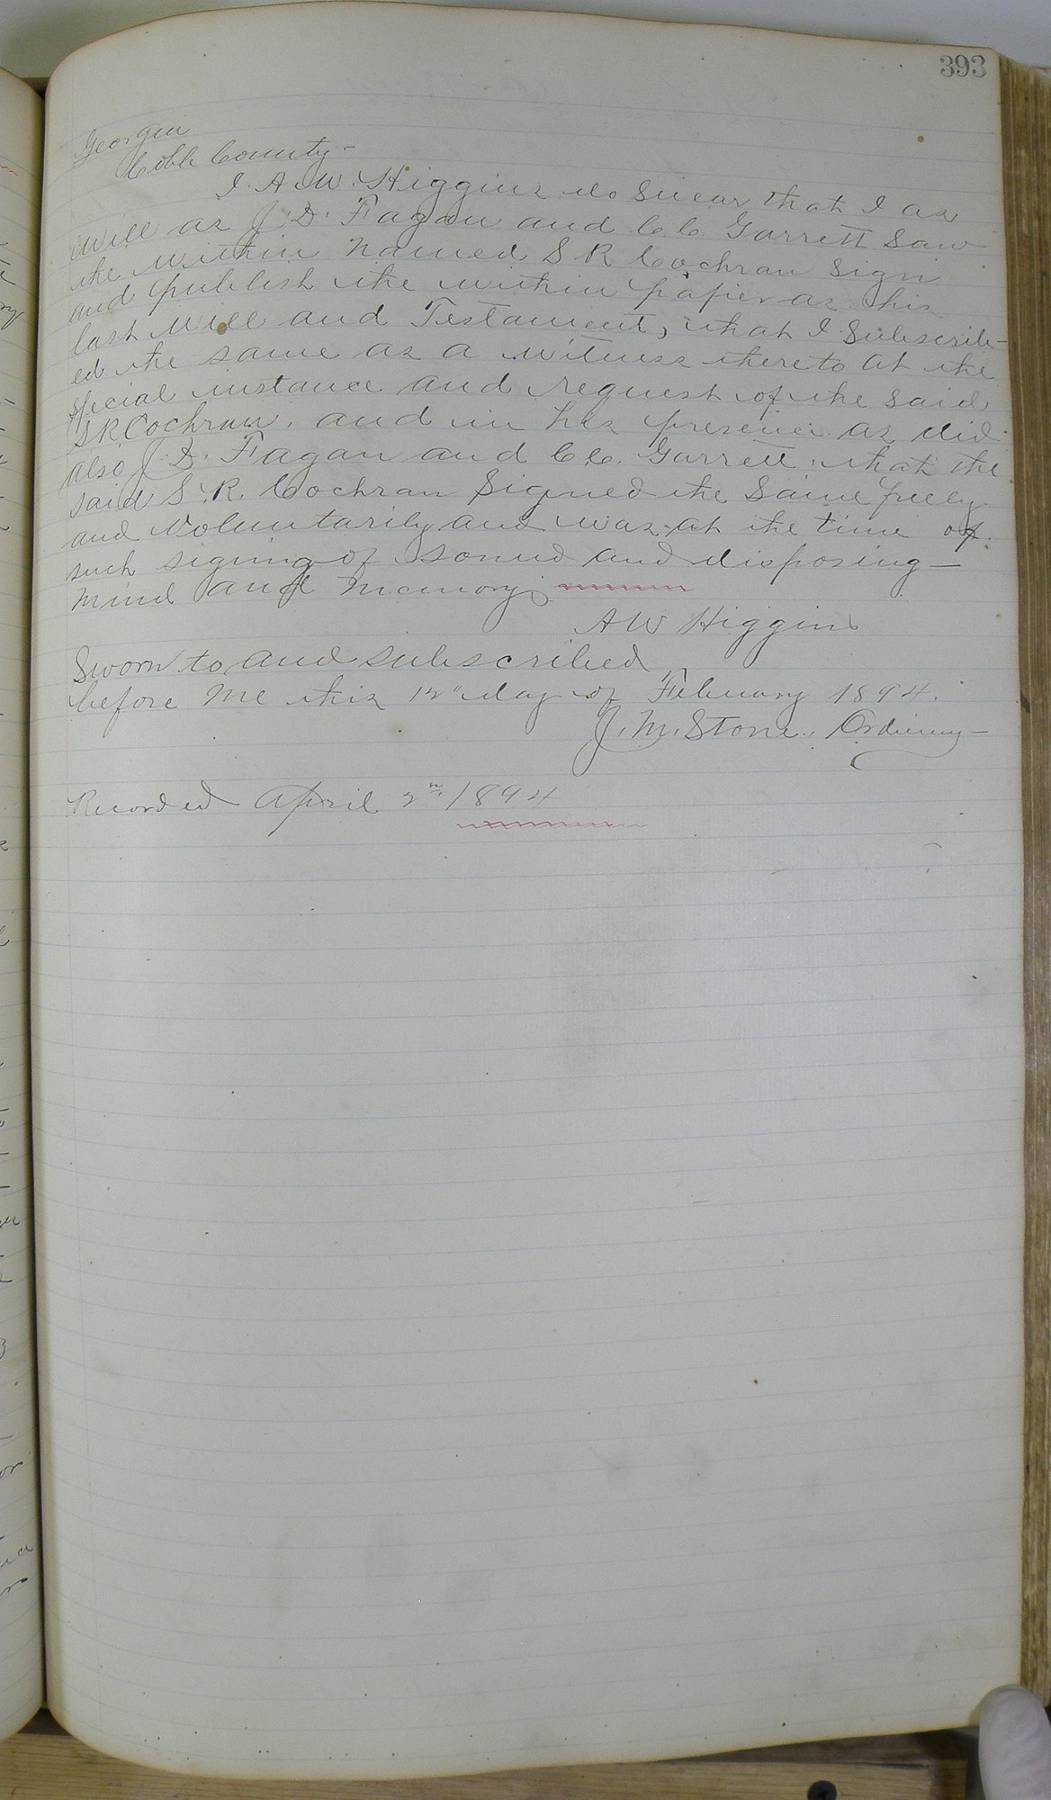 393
Georgia
Cobb County -
I. A. W. Higgins do swear that I as
will as J. D. Fagan and C. C. Garrett saw
the within named S R Cochran sign
and publish the within paper as his
last will and Testament, that I subscrib-
ed the same as a witness thereto at the
special instance and request of the said
S R Cochran, and in his presence as did
also J. D. Fagan and C. C. Garrett, that the
said S. R. Cochran signed the same freely
and voluntarily and was at the time of
such signing of sound and disposing -
mind and memory.
A W Higgins
Sworn to and subscribed
before me this 12" day of February 1894.
J. M. Stone, Ordinary -
Recorded April 2nd 1894